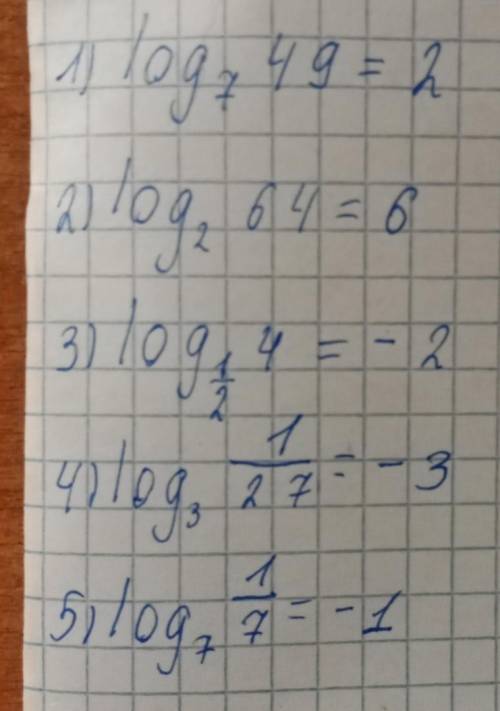 1) log₇ 49 = 2
2) log₂ 64 = 6
3) log_{1/2} 4 = - 2
4) log₃ 1/27 = - 3
5) log₇ 1/7 = - 1